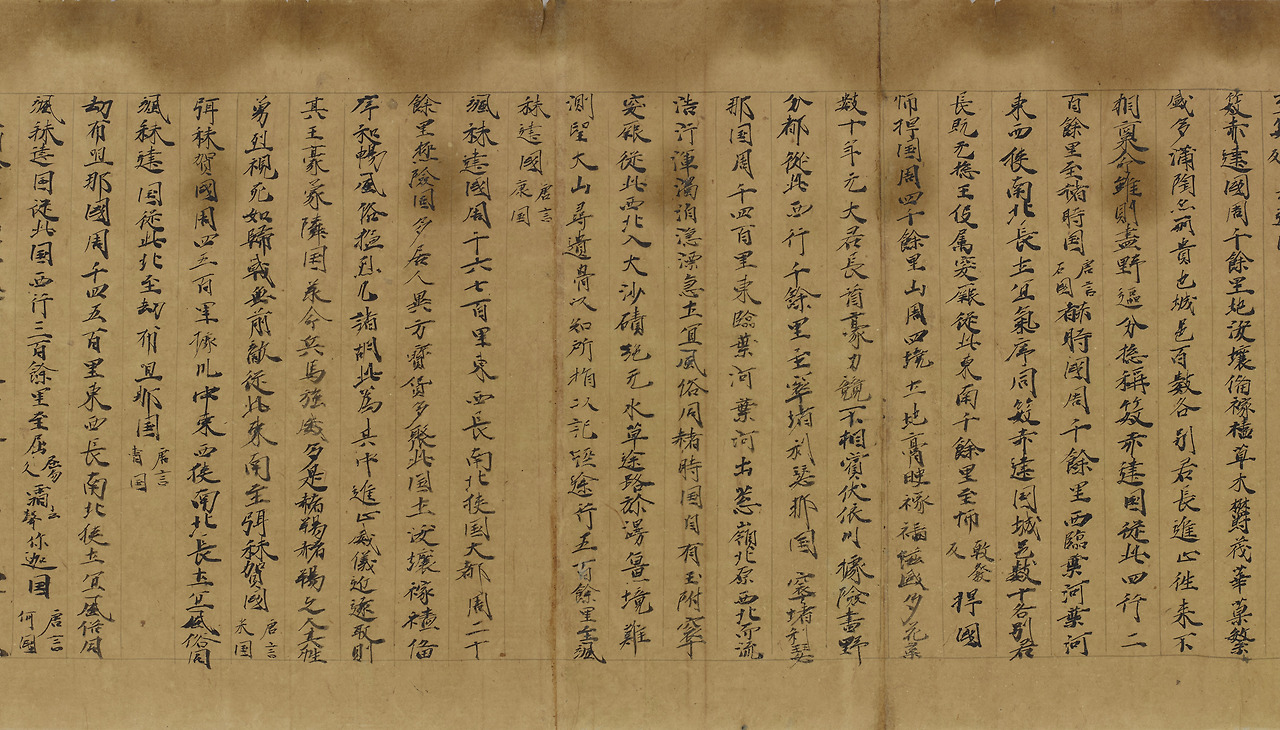 笯赤建國周千餘里地沃壤俻稼穡草木欝茂華菓繁
盛多蒲陶亦所貴也城邑百數各別君長進止徃来不
相稟命雖則畫野區分揔稱笯赤建国從此西行二
百餘里至赭時国唐言石国赭時國周千餘里西臨葉河葉河
東西狹南北長土冝氣序同笯赤建国城邑數十各別君
長既无揔主伇属突厥從此東南千餘里至怖敷發反捍國
怖捍国周四千餘里山周四境土地膏腴稼穡滋盛多花菓
數十年无大君長酋豪力競不相賓伏依川據險畫野
分都從此西行千餘里至窣堵利瑟那国窣堵利瑟
那国周千四百里東臨葉河葉河出葱嶺北原西北而流
浩汗渾濁汩淴漂急土冝風俗同赭時国自有王附
突厥從此西北入大沙磧絶无水草途路弥漫壃境難
測望大山尋遺骨以知所指以記經途行五百餘里至颯
秣建國唐言康国
颯秣建國周千六七百里東西長南北狹国大都周二十
餘里極險固多居人異方寶貨多聚此国土沃壤稼穡俻
序和暢風俗猛烈凢諸胡此為其中進止威儀近遠取則
其王豪勇隣国承命兵馬強盛多是赭羯赭羯之人其性
勇烈視死如歸戰無前敵從此東南至弭秣賀國唐言米国
弭秣賀國周四五百里據川中東西狹南北長土冝風俗同
颯秣建国從此北至劫布呾那国唐言曹国
劫布呾那國周千四五百里東西長南北狹土冝風俗同
颯秣建国從此国西行三百餘里至屈霜你迦国唐言何国